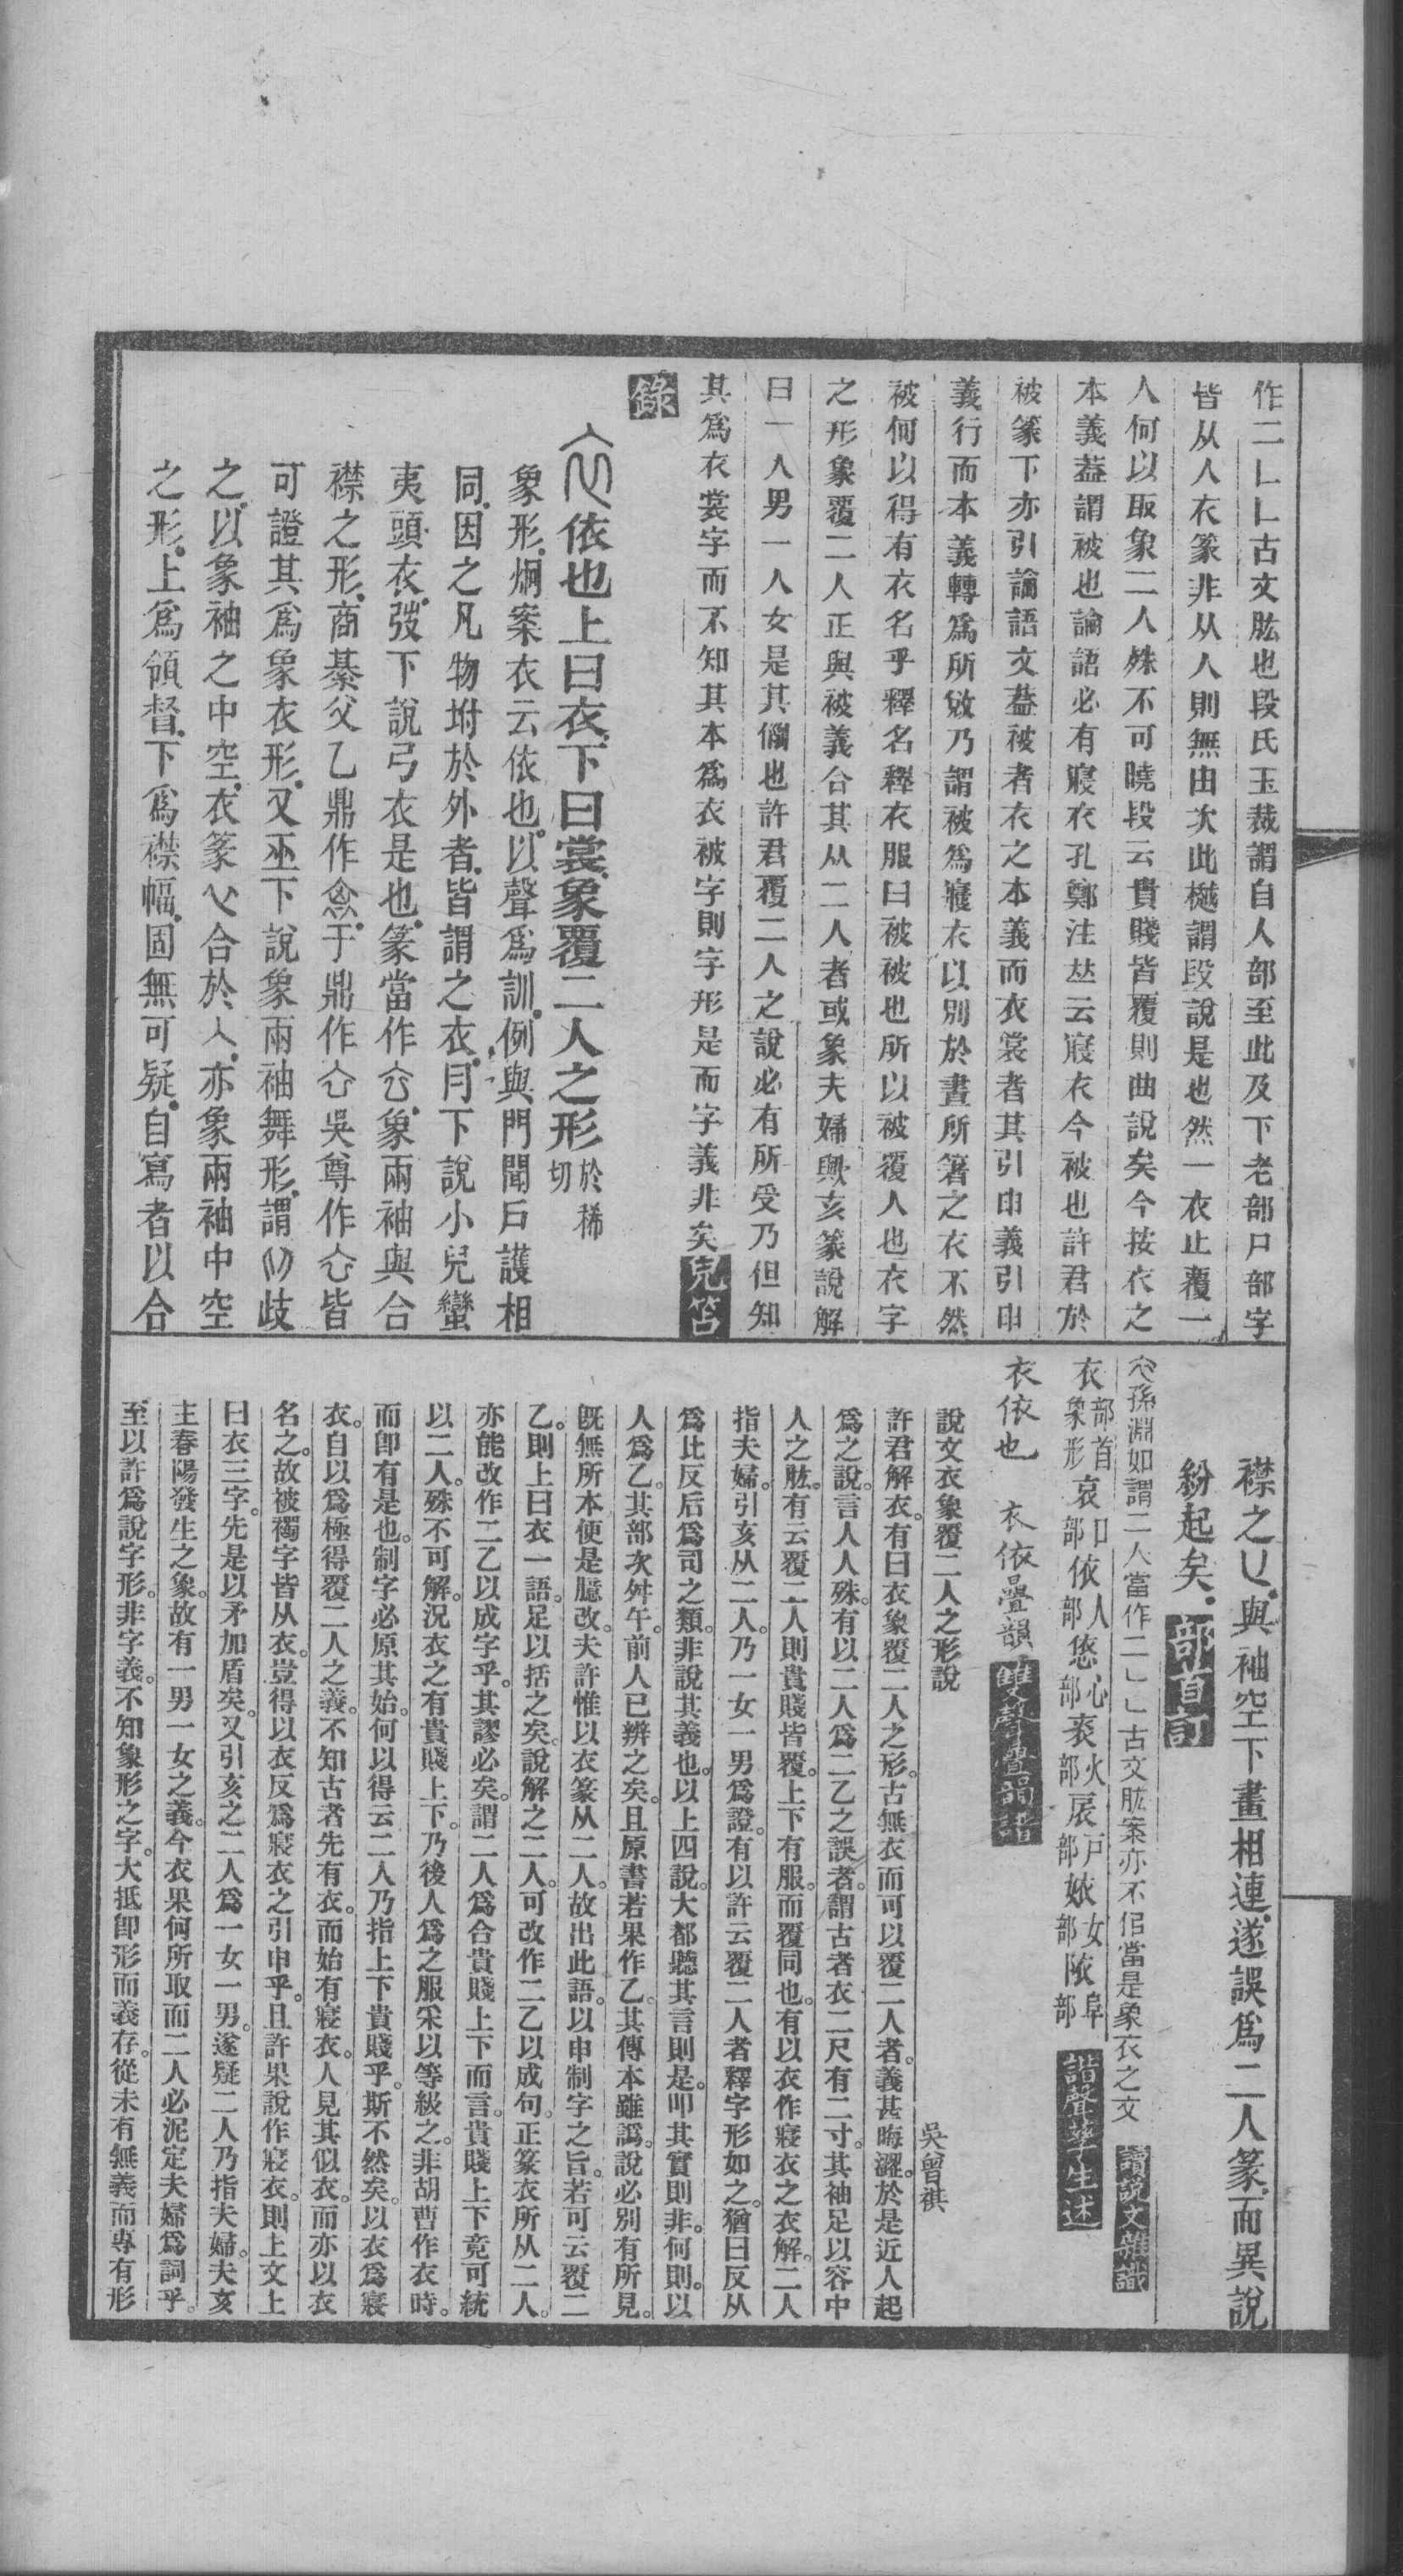 作二乚乚古文肱也段氏玉裁謂自人部至此及下老部尸部字
皆从人衣篆非从人則無由次此樾謂段說是也然一衣止覆一
人何以取象二人殊不可曉段云貴賤皆覆則曲說矣今按衣之
本義葢謂被也論語必有寢衣孔鄭注竝云寢衣今被也許君於
被篆下亦引論語文葢被者衣之本義而衣裳者其引申義引申
義行而本義轉爲所敓乃謂被爲寢衣以別於晝所箸之衣不然
被何以得有衣名乎釋名釋衣服曰被被也所以被覆人也衣字
之形象覆二人正與被義合其从二人者或象夫婦歟亥篆說解
曰一人男一人女是其儷也許君覆二人之說必有所受乃但知
其爲衣裳字而不知其本爲衣被字則字形是而字義非矣兒笘
錄
依也上曰衣下曰裳象覆二人之形於稀切
象形炯案衣云依也以聲爲訓例與門聞戶護相
同因之凡物坿於外者皆謂之衣冃下說小兒蠻
夷頭衣弢下說弓衣是也篆當作象兩袖與合
襟之形商綦父乙鼎作于鼎作吳尊作皆
可證其爲象衣形又巫下說象兩袖舞形謂歧
之以象袖之中空衣篆合於人亦象兩袖中空
之形上爲領督下爲襟幅固無可疑自寫者以合
襟之與袖空下畫相連遂誤爲二人篆而異說
紛起矣部首訂
孫淵如謂二人當作二乚乚古文肱案亦不佀當是象衣之文 讀說文雜識
衣部首象形哀口部依人部㥋心部裒火部扆戶部㛄女部陊阜部 諧聲孳生述
衣依也 衣依疊韻雙聲疊韻譜
說文衣象覆二人之形說 吳曾祺
許君解衣有曰衣象覆二人之形古無衣而可以覆二人者義甚晦澀於是近人起
爲之說言人人殊有以二人爲二乙之誤者謂古者衣二尺有二寸其袖足以容中
人之肱有云覆二人則貴賤皆覆上下有服而覆同也有以衣作寢衣之衣解二人
指夫婦引亥从二人乃一女一男爲證有以許云覆二人者釋字形如之猶曰反从
爲比反后爲司之類非說其義也以上四說大都聽其言則是叩其實則非何則以
人爲乙其部次舛午前人已辨之矣且原書若果作乙其傳本雖譌說必別有所見
旣無所本便是臆改夫許惟以衣篆从二人故出此語以申制字之旨若可云覆二
乙則上曰衣一語足以括之矣說解之二人可改作二乙以成句正篆衣所从二人
亦能改作二乙以成字乎其謬必矣謂二人爲合貴賤上下而言貴賤上下竟可統
以二人殊不可解況衣之有貴賤上下乃後人爲之服采以等級之非胡曹作衣時
而卽有是也制字必原其始何以得云二人乃指上下貴賤乎斯不然矣以衣爲寢
衣自以爲極得覆二人之義不知古者先有衣而始有寢衣人見其似衣而亦以衣
名之故被襡字皆从衣豈得以衣反爲寢衣之引申乎且許果說作寢衣則上文上
曰衣三字先是以矛加盾矣又引亥之二人爲一女一男遂疑二人乃指夫婦夫亥
主春陽發生之象故有一男一女之義今衣果何所取而二人必泥定夫婦爲詞乎
至以許爲說字形非字義不知象形之字大抵卽形而義存從未有無義而專有形